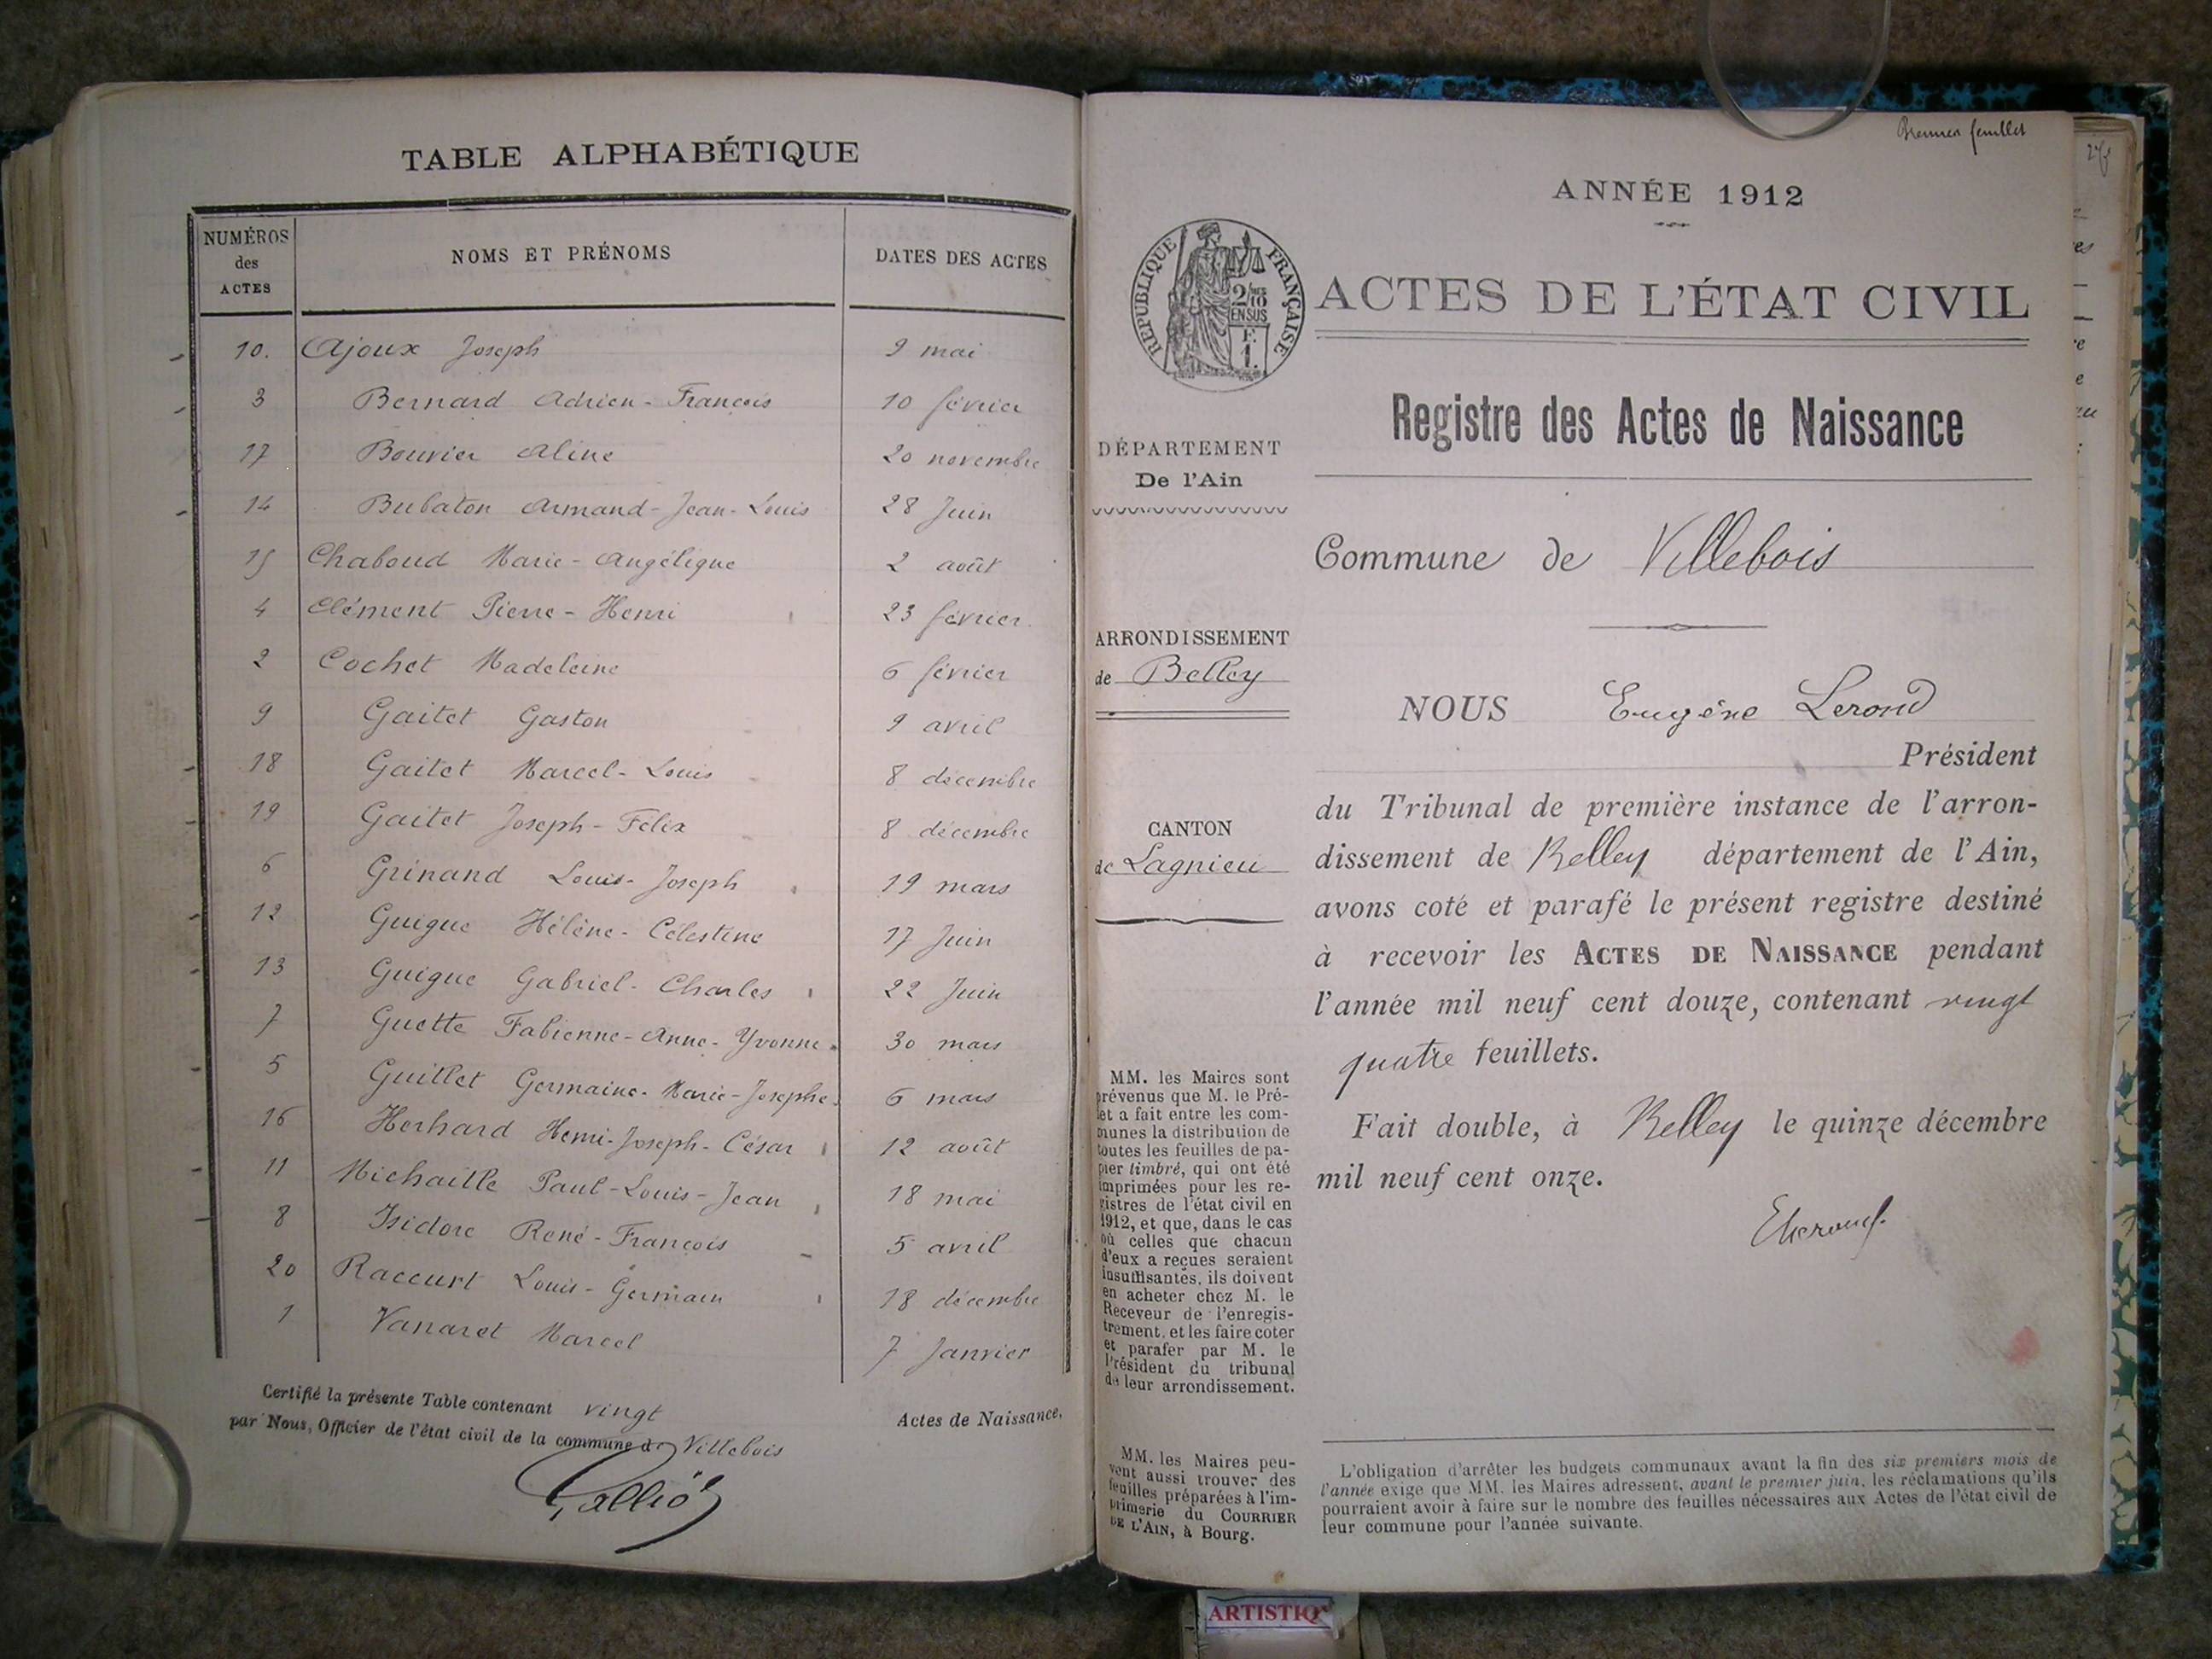 TABLE ALPHABÉTIQUE
NUMÉROS des ACTES NOMS ET PRÉNOMS DATES DES ACTES
10. Ajoux Joseph 9 mai
3 Bernard Adrien-François 10 février
17 Bouvier Aline 20 novembre
14 Bubaton Armand-Jean-Louis 28 Juin
15 Chaboud Marie-Angélique 2 août
4 Clément Pierre-Henri 23 février
2 Cochet Madeleine 6 février
9 Gaitet Gaston 9 avril
18 Gaitet Marcel-Louis 8 décembre
19 Gaitet Joseph-Félix 8 décembre
6 Grinand Louis-Joseph 19 mars
12 Guigue Hélène-Célestine 17 Juin
13 Guigue Gabriel-Charles 22 Juin
7 Guette Fabienne-Anne-Yvonne 30 mars
5 Guillet Germaine-Marie-Josephe 6 mars
16 Herhard Henri-Joseph-César 12 août
11 Michaille Paul-Louis-Jean 18 mai
8 Isidore René-François 5 avril
20 Raccurt Louis-Germain 18 décembre
1 Vanaret Marcel 7 Janvier
Certifié la présente Table contenant vingt Actes de Naissance,
par Nous, Officier de l'état civil de la commune de Villebois
Premier feuillet
ANNÉE 1912
RÉPUBLIQUE FRANÇAISE
2/10
EN SUS
F.
1.
ACTES DE L'ÉTAT CIVIL
Registre des Actes de Naissance
DÉPARTEMENT
De l'Ain
Commune de Villebois
ARRONDISSEMENT
de Belley
CANTON
de Lagnieu
NOUS Eugène Lerond
Président
du Tribunal de première instance de l'arron-
dissement de Belley département de l'Ain,
avons coté et parafé le présent registre destiné
à recevoir les ACTES DE NAISSANCE pendant
l'année mil neuf cent douze, contenant vingt
quatre feuillets.
Fait double, à Belley le quinze décembre
mil neuf cent onze.
MM. les Maires sont
prévenus que M. le Pré-
fet a fait entre les com-
munes la distribution de
toutes les feuilles de pa-
pier timbré, qui ont été
imprimées pour les re-
gistres de l'état civil en
1912, et que, dans le cas
où celles que chacun
d'eux a reçues seraient
insuffisantes, ils doivent
en acheter chez M. le
Receveur de l'enregis-
trement, et les faire coter
et parafer par M. le
Président du tribunal
de leur arrondissement.
MM. les Maires peu-
vent aussi trouver des
feuilles préparées à l'im-
primerie du COURRIER
DE L'AIN, à Bourg.
L'obligation d'arrêter les budgets communaux avant la fin des six premiers mois de
l'année exige que MM. les Maires adressent, avant le premier juin, les réclamations qu'ils
pourraient avoir à faire sur le nombre des feuilles nécessaires aux Actes de l'état civil de
leur commune pour l'année suivante.
ARTISTIQ